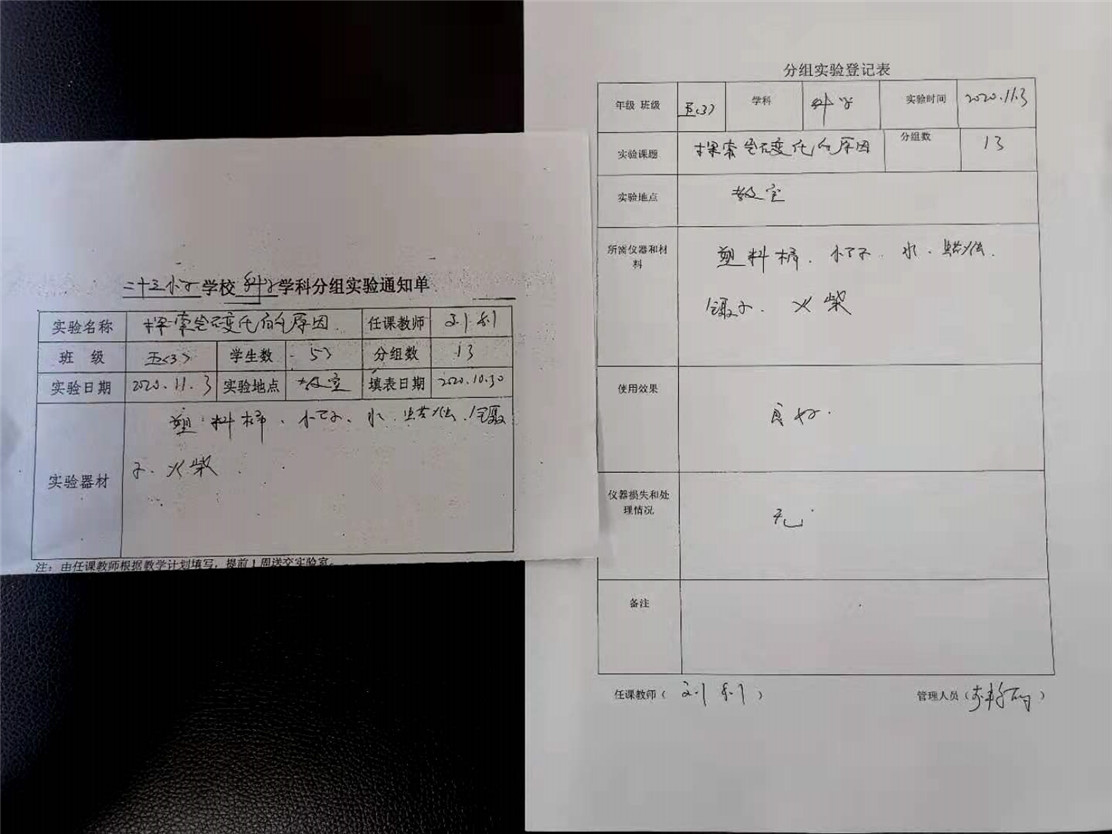 二十三小学学校科学学科分组实验通知单
实验名称 探索岩石变化的原因 任课教师
班 级 五(3) 学生数 53 分组数 13
实验日期 2020.11.3 实验地点 教室 填表日期 2020.10.30
实验器材 塑料桶、小石子、水、蜡烛、镊
子、火柴
注：由任课教师根据教学计划填写，提前1周送交实验室。
分组实验登记表
年级 班级 五(3) 学科 科学 实验时间 2020.11.3
实验课题 探索岩石变化的原因 分组数 13
实验地点 教室
所需仪器和材
料
塑料桶、小石子、水、蜡烛、
镊子、火柴
使用效果 良好.
仪器损失和处
理情况
无
备注
任课教师（ ） 管理人员（ ）